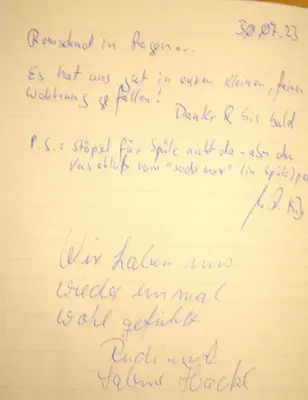 30.07.23
in Regen
Es hat uns gut in eurer kleinen, feinen
Wohnung gefallen!
Danke & bis bald
P.S.: Stöpsel für Spüle nicht da - aber der
vom "
Wir haben uns
wieder einmal
wohl gefühlt
Rudi und
Sabine Hackl